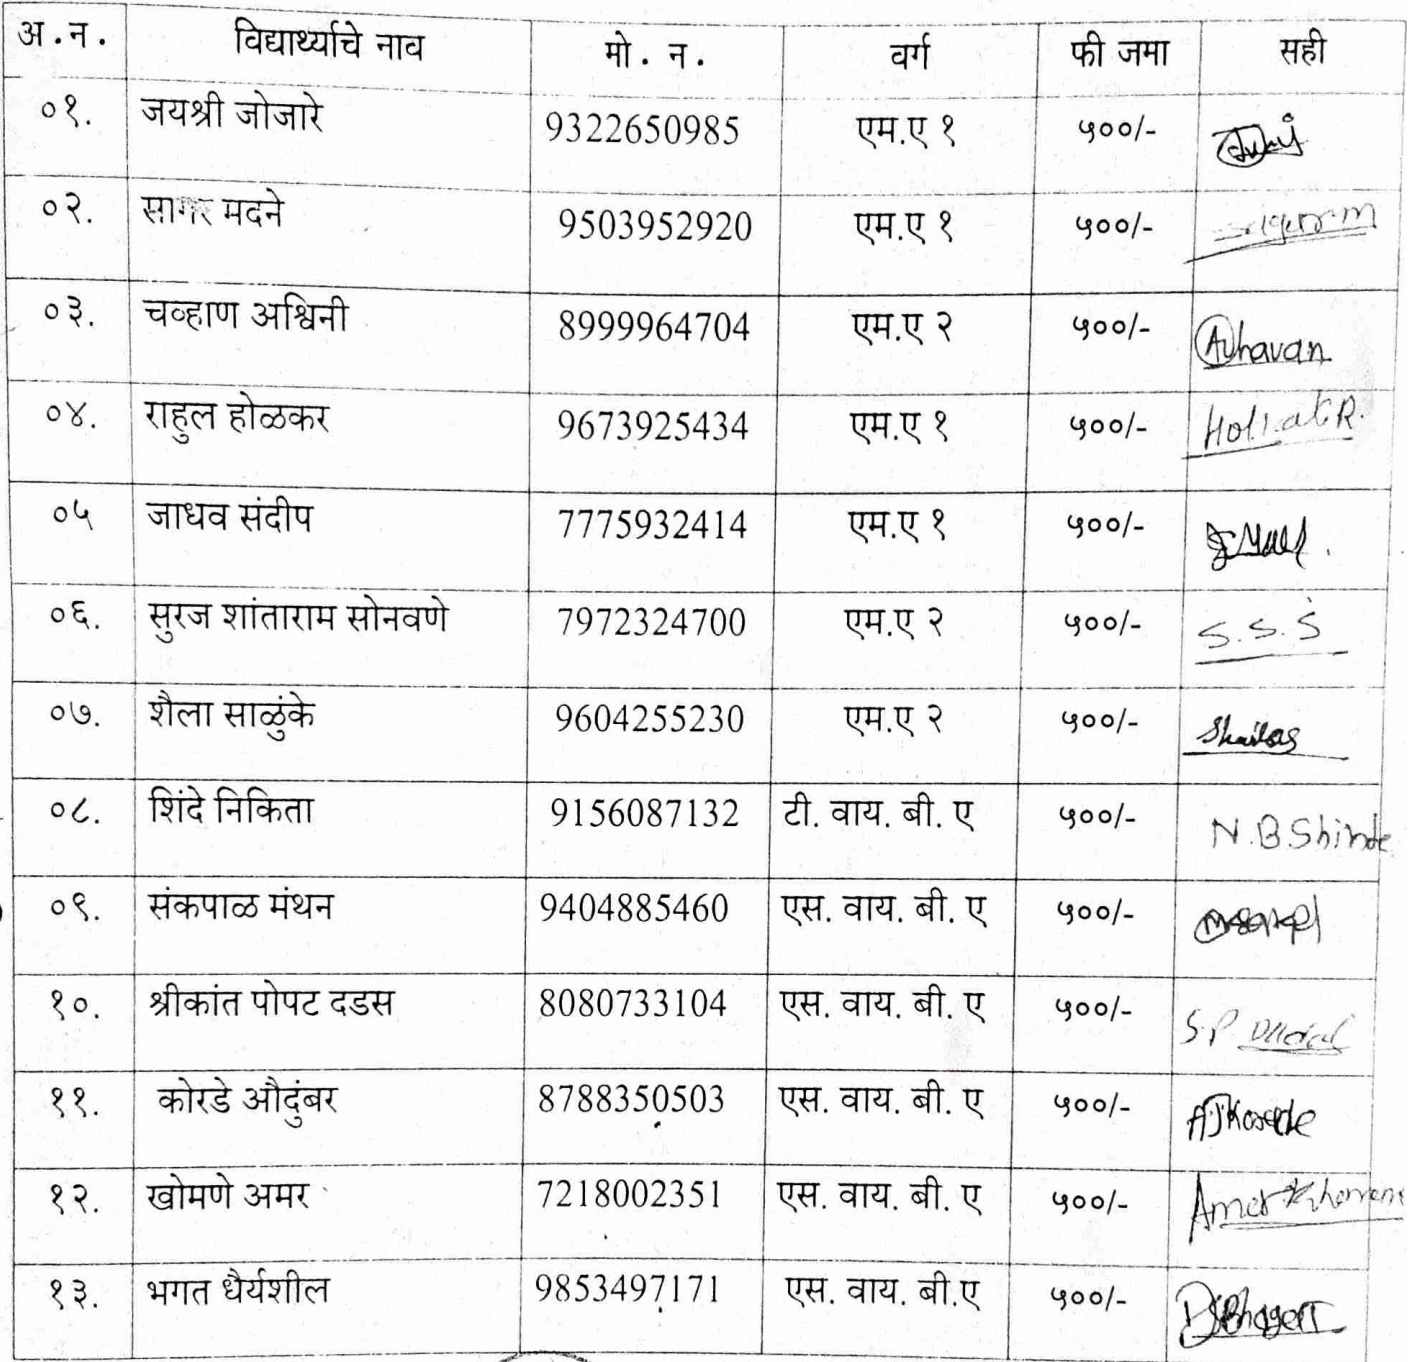 अ.न. विद्यार्थ्याचे नाव मो. न. वर्ग फी जमा सही
०१. जयश्री जोजारे 9322650985 एम.ए १ ५००/-
०२. सागर मदने 9503952920 एम.ए १ ५००/-
०३. चव्हाण अश्विनी 8999964704 एम.ए २ ५००/- AChavan
०४. राहुल होळकर 9673925434 एम.ए १ ५००/-
०५ जाधव संदीप 7775932414 एम.ए १ ५००/-
०६. सुरज शांताराम सोनवणे 7972324700 एम.ए २ ५००/- S.S.S
०७. शैला साळुंके 9604255230 एम.ए २ ५००/-
०८. शिंदे निकिता 9156087132 टी. वाय. बी. ए ५००/- N.B.Shinde
०९. संकपाळ मंथन 9404885460 एस. वाय. बी. ए ५००/-
१०. श्रीकांत पोपट दडस 8080733104 एस. वाय. बी. ए ५००/- S.P
११. कोरडे औदुंबर 8788350503 एस. वाय. बी. ए ५००/-
१२. खोमणे अमर 7218002351 एस. वाय. बी. ए ५००/- Amar
१३. भगत धैर्यशील 9853497171 एस. वाय. बी.ए ५००/-